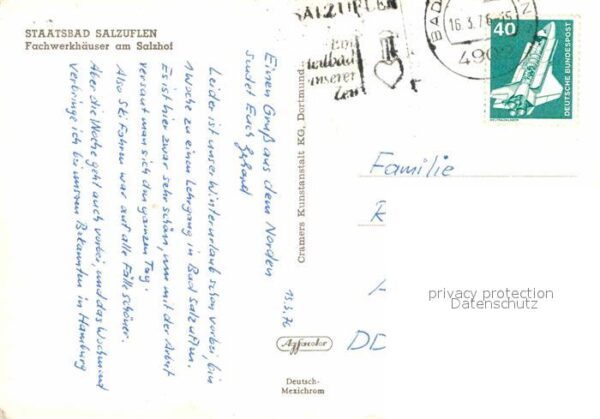 STAATSBAD SALZUFLEN
Fachwerkhäuser am Salzhof
Einen Gruß aus dem Norden
sendet Euch Gerhard
Leider ist unser Winterurlaub schon vorbei, bin
1 Woche zu einem Lehrgang in Bad Salzuflen.
Es ist hier zwar sehr schön, nur mit der Arbeit
versaut man sich den ganzen Tag.
Also Ski Fahren war auf alle Fälle schöner.
Aber die Woche geht auch vorbei, und das Wochenend
verbringe ich bei unseren Bekannten in Hamburg
15.3.76
Cramers Kunstanstalt KG, Dortmund
Agfacolor
Deutsch-
Mexichrom
SALZUFLEN
unserer
Zeit
BAD
16.3.76-15
4902
40
DEUTSCHE BUNDESPOST
Familie
R
DD
privacy protection
Datenschutz